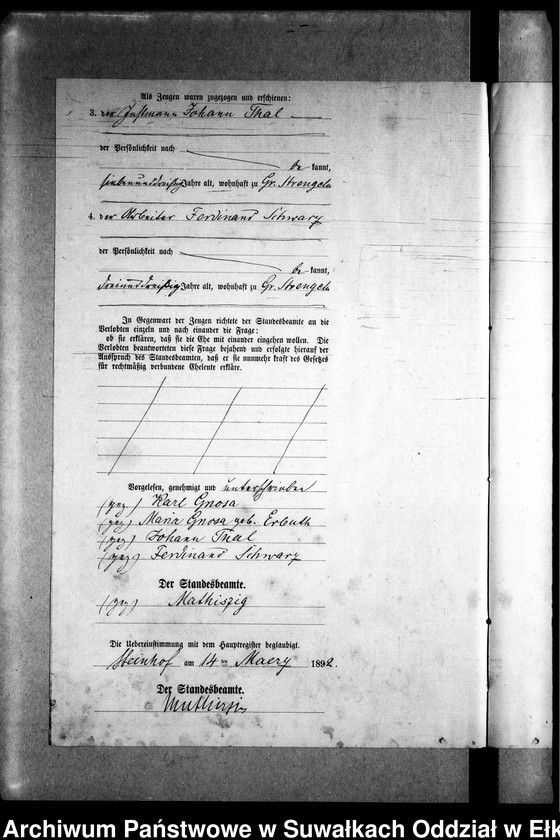 Als Zeugen waren zugezogen und erschienen:
3. der Instmann Johann Thal
der Persönlichkeit nach
be kannt,
siebenunddreißig Jahre alt, wohnhaft zu Gr. Strengeln
4. der Arbeiter Ferdinand Schwarz
der Persönlichkeit nach
be kannt,
dreiunddreißig Jahre alt, wohnhaft zu Gr. Strengeln
In Gegenwart der Zeugen richtete der Standesbeamte an die
Verlobten einzeln und nach einander die Frage:
ob sie erklären, daß sie die Ehe mit einander eingehen wollen. Die
Verlobten beantworteten diese Frage bejahend und erfolgte hierauf der
Ausspruch des Standesbeamten, daß er sie nunmehr kraft des Gesetzes
für rechtmäßig verbundene Eheleute erkläre.
Vorgelesen, genehmigt und unterschrieben
(gez) Karl Gnosa
(gez) Maria Gnosa geb. Erbuth
(gez) Johann Thal
(gez) Ferdinand Schwarz
Der Standesbeamte.
(gez) Mathiszig
Die Uebereinstimmung mit dem Hauptregister beglaubigt.
Steinhof am 14 ten Maerz 1892.
Der Standesbeamte.
Archiwum Państwowe w Suwałkach Oddział w Ełk